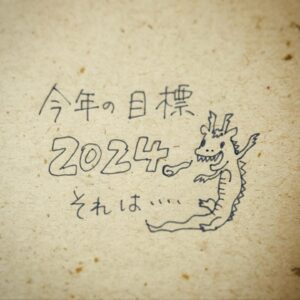 今年の目標
2024
それは....